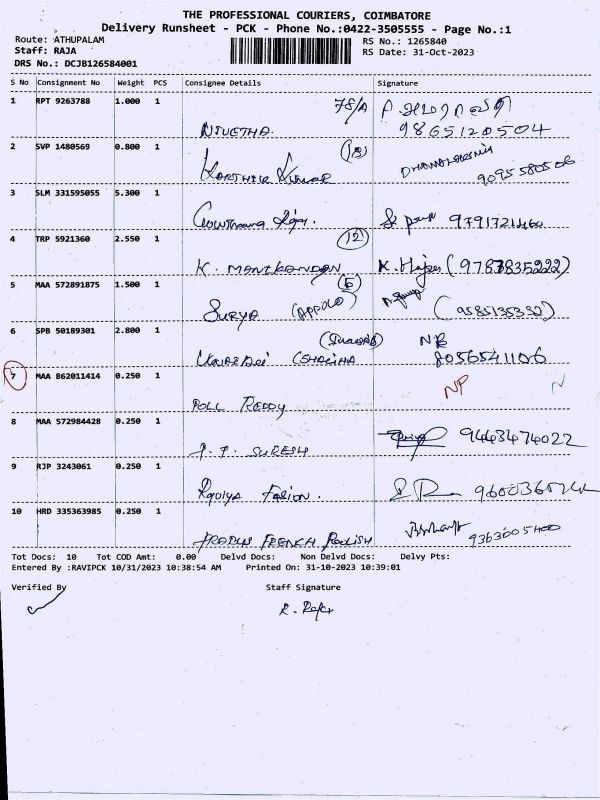 THE PROFESSIONAL COURIERS, COIMBATORE
Delivery Runsheet - PCK - Phone No.:0422-3505555 - Page No.:1
Route: ATHUPALAM
RS No.: 1265840
Staff: RAJA
RS Date: 31-Oct-2023
DRS No.: DCJB126584001
S No Consignment No Weight PCS Consignee Details Signature
1 RPT 9263788 1.000 1 78/A
NIVETHA. 9865120504
2 SVP 1480569 0.800 1
KARTHIK KUMAR 9095580506
3 SLM 331595055 5.300 1
9791721460
4 TRP 5921360 2.550 1 (12)
K. MANIKANDAN K. (9787835222)
5 MAA 572891875 1.500 1
SURYA (APPOLO) (9585135332)
6 SPB 50189301 2.800 1 NB
8056541106
7 MAA 862011414 0.250 1 NP N
POLL REDDY
8 MAA 572984428 0.250 1
SURESH 9443474022
9 RJP 3243061 0.250 1
10 HRD 335363985 0.250 1
FRENCH POLISH 9363005400
Tot Docs: 10 Tot COD Amt: 0.00 Delvd Docs: Non Delvd Docs: Delvy Pts:
Entered By :RAVIPCK 10/31/2023 10:38:54 AM Printed On: 31-10-2023 10:39:01
Verified By Staff Signature
R. Raja